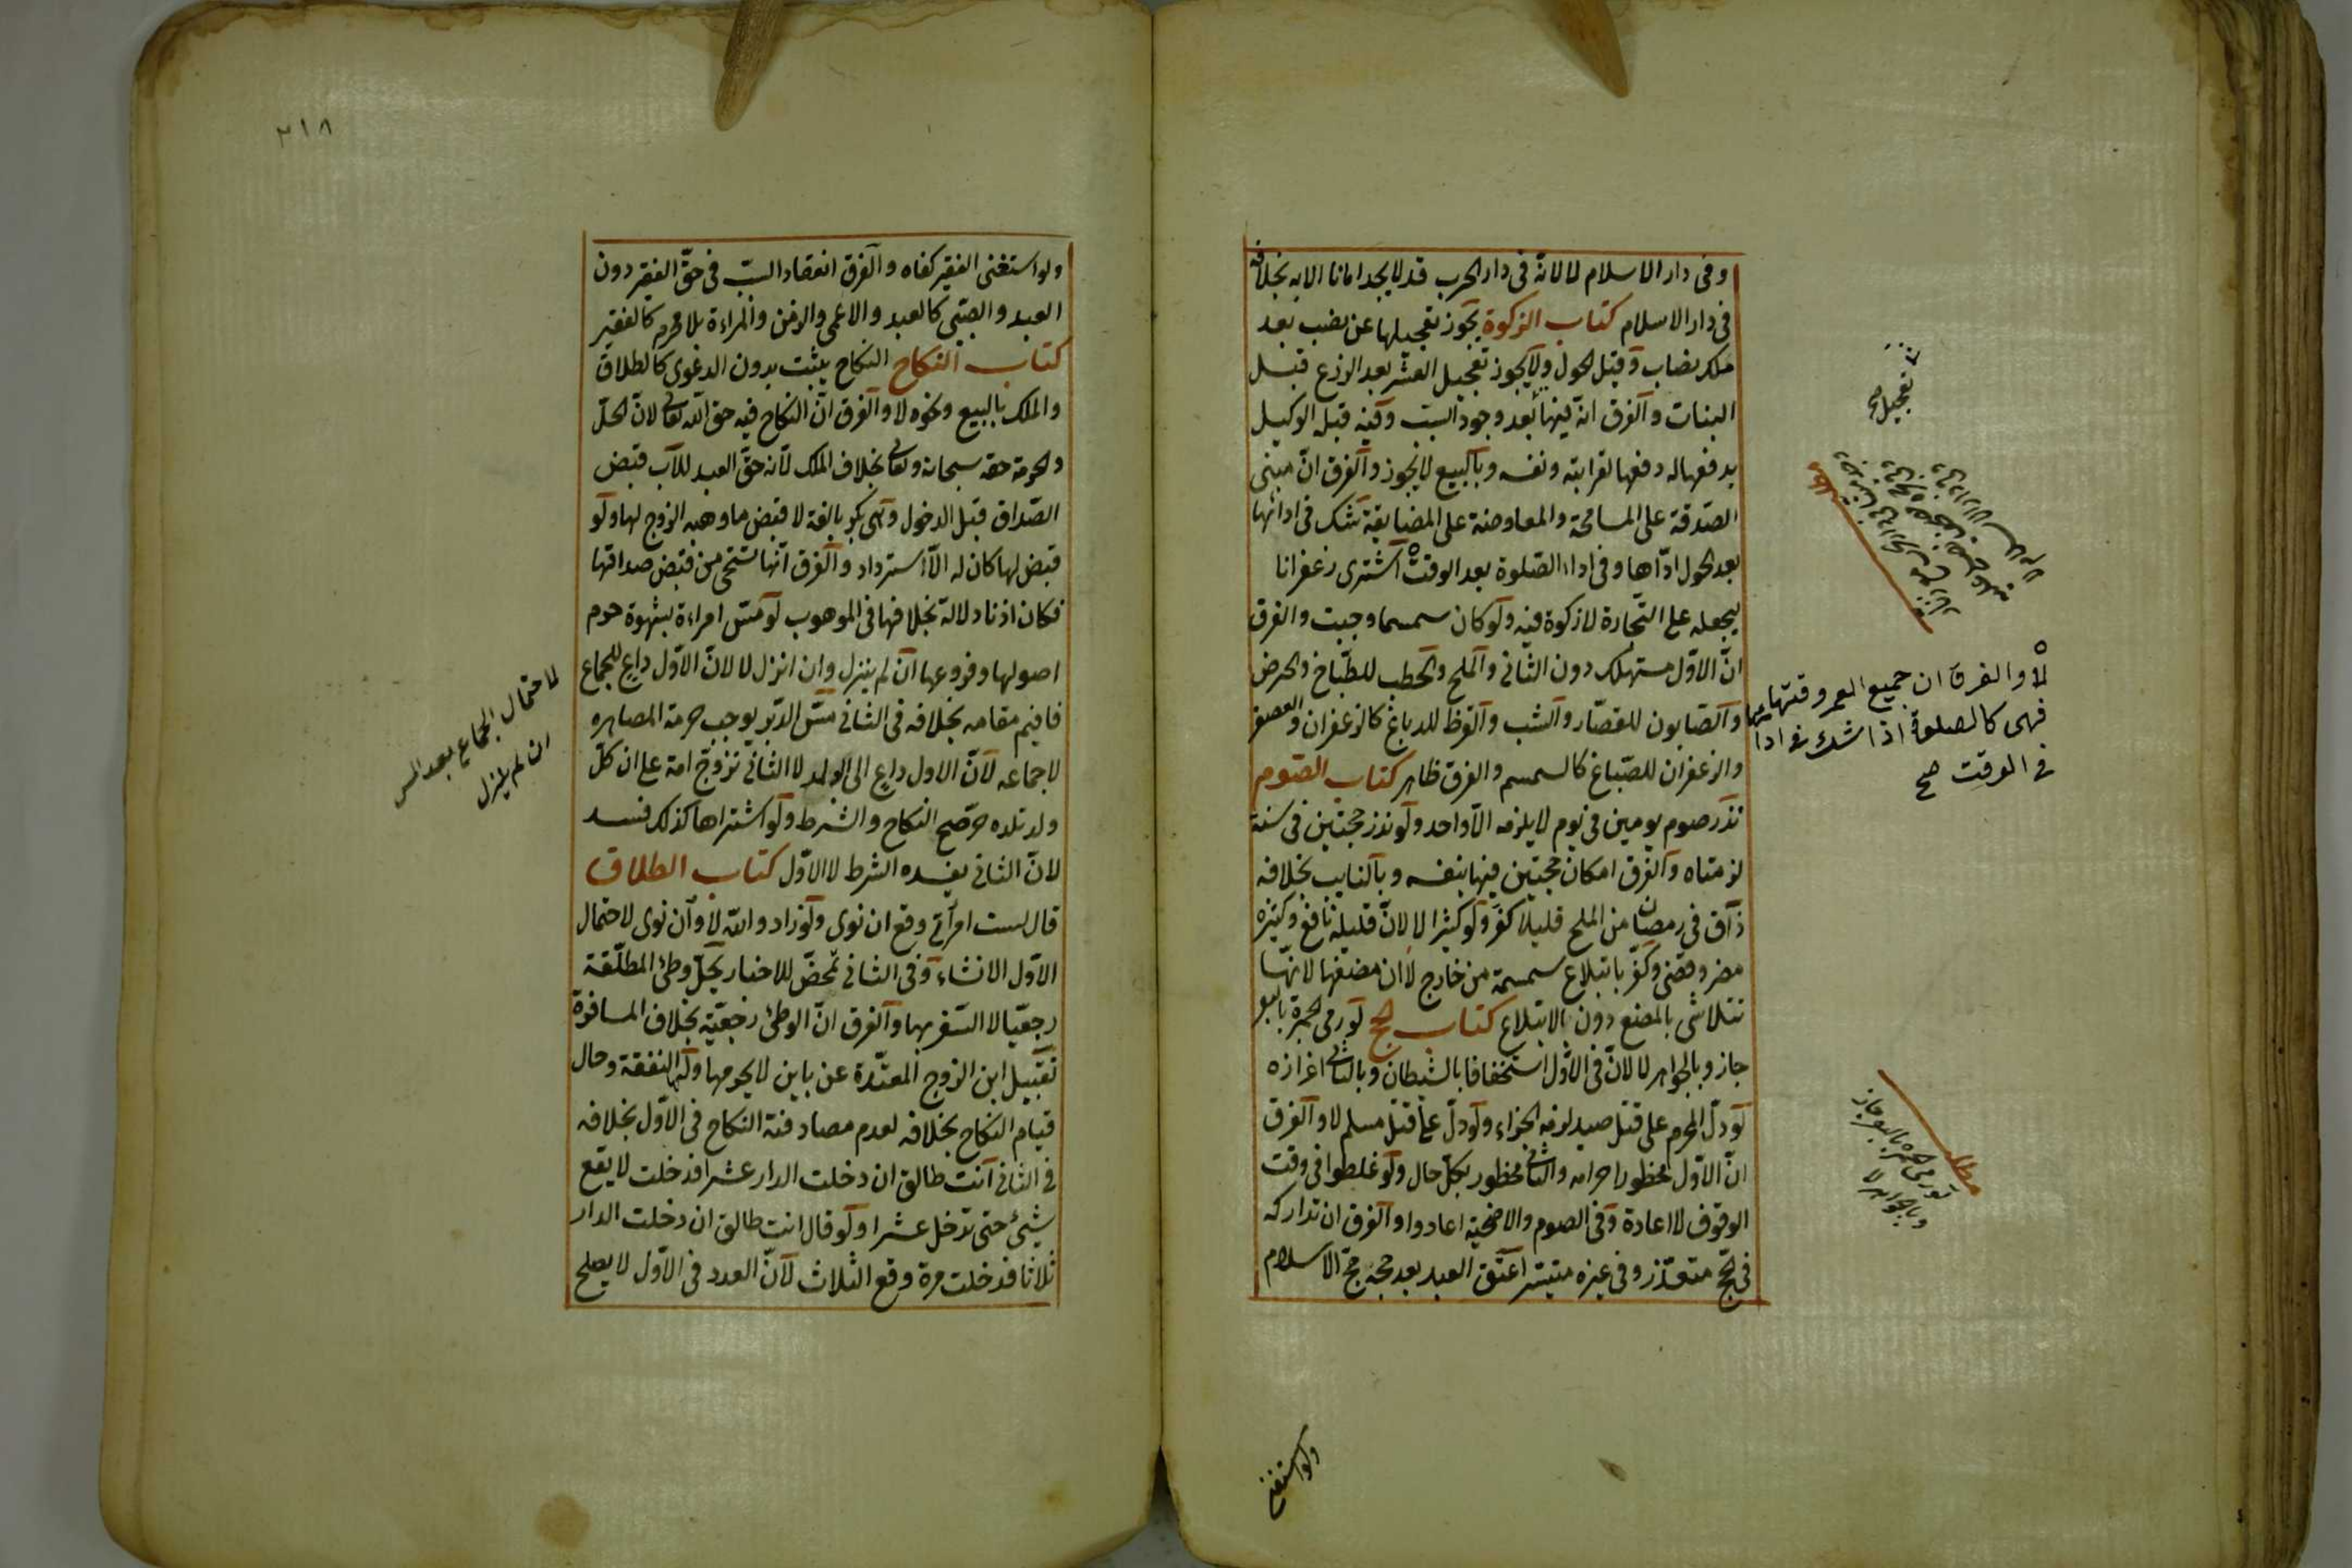 وفى دار الاسلام لا لانه فى دار الحرب قد لا يجد امانا الا به بخلافه
فى دار الاسلام كتاب الزكوة يجوز تعجيلها عن نصب بعد
ملك نصاب وقبل الحول ولا يجوز تعجيل العشر بعد الزرع قبل
النبات والفرق انه فيها بعد وجود السبب وفيه قبله الوكيل
بدفعها له دفعها لقرابته ونفسه وبالبيع لا يجوز والفرق ان مبنى
الصدقة على المسامحة والمعاوضة على المضايقة شك فى ادائها
بعد الحول اداها وفى اداء الصلوة بعد الوقت اشترى زعفرانا
ليجعله على التجارة لا زكوة فيه ولو كان سمسما وجبت والفرق
ان الاول مستهلك دون الثانى والملح والحطب للطباخ والحرض
والصابون للقصار والشب والقرظ للدباغ كالزعفران والعصفر
والزعفران للصباغ كالسمسم والفرق ظاهر كتاب الصوم
نذر صوم يومين فى يوم لا يلزمه الا واحد ولو نذر حجتين فى سنة
لزمتاه والفرق امكان حجتين فيها بنفسه وبالنايب بخلافه
ذاق فى رمضان من الملح قليلا كفر ولو كثيرا لا لان قليله نافع وكثيره
مضر وقضى وكفر بابتلاع سمسمة من خارج لا ان مضغها لانها
تتلاشى بالمضغ دون الابتلاع كتاب الحج لو رمى الجمرة بالبعر
جاز وبالجواهر لا لان فى الاول استخفافا بالشيطان وبالثانى اعزازه
لو دل المحرم على قتل صيد لزمه الجزاء ولو دل على قتل مسلم لا والفرق
ان الاول محظور احرامه والثانى محظور بكل حال ولو غلطوا فى وقت
الوقوف لا اعادة وفى الصوم والاضحية اعادوا والفرق ان تداركه
فى الحج متعذر وفى غيره متيسر اعتق العبد بعد حجه حج الاسلام
تعجيل صح
لا والفرق ان جميع العمر وقتها
فهى كالصلوة اذا شك فى ادائها
فى الوقت صح
مطلب
لو رمى الجمرة بالبعر جاز
وبالجواهر لا
ولو استغنى
٢١٨
ولو استغنى الفقير كفاه والفرق انعقاد السبب فى حق الفقير دون
العبد والصبى كالعبد والاعمى والزمن والمراءة بلا محرم كالفقير
كتاب النكاح النكاح يثبت بدون الدعوى كالطلاق
والملك بالبيع ونحوه لا والفرق ان النكاح فيه حق الله تعالى لان الحل
والحرمة حقه سبحانه وتعالى بخلاف الملك لانه حق العبد للاب قبض
الصداق قبل الدخول وهى بكر بالغة لا قبض ما وهبه الزوج لها ولو
قبض لها كان له الاسترداد والفرق انها تستحى من قبض صداقها
فكان اذنا دلالة بخلافها فى الموهوب لو مس امراءة بشهوة حرم
اصولها وفروعها ان لم ينزل وان انزل لا لان الاول داع للجماع
فاقيم مقامه بخلافه فى الثانى مس الدبر يوجب حرمة المصاهره
لا جماعه لان الاول داع الى الولد لا الثانى تزوج امة على ان كل
ولد تلده حر صح النكاح والشرط ولو اشتراها كذلك فسد
لان الثانى يفسده الشرط لا الاول كتاب الطلاق
قال لست امرأتى وقع ان نوى ولو زاد والله لا وان نوى لاحتمال
الاول الانشاء وفى الثانى تمحض للاخبار يحل وطئ المطلقة
رجعيا لا السفر بها والفرق ان الوطئ رجعية بخلاف المسافرة
تقبيل ابن الزوج المعتدة عن باين لا يحرمها ولها النفقة وحال
قيام النكاح بخلافه لعدم مصادفته النكاح فى الاول بخلافه
فى الثانى انت طالق ان دخلت الدار عشرا فدخلت لا يقع
شيئ حتى تدخل عشرا ولو قال انت طالق ان دخلت الدار
ثلاثا فدخلت مرة وقع الثلاث لان العدد فى الاول لا يصلح
لاحتمال الجماع بعد المس
ان لم ينزل